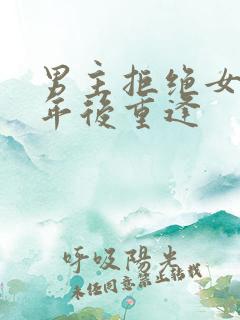 男主拒绝女
年後重逢
呼吸陽光
未经同意禁止转载